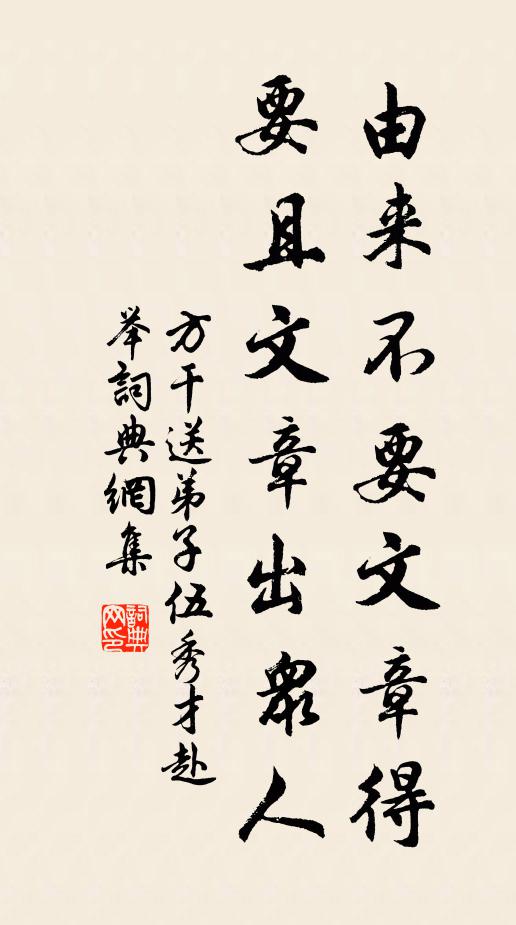 由来不要文章得
要且文章出眾人
方干送弟子伍秀才赴
举詞典網集
詞典网印